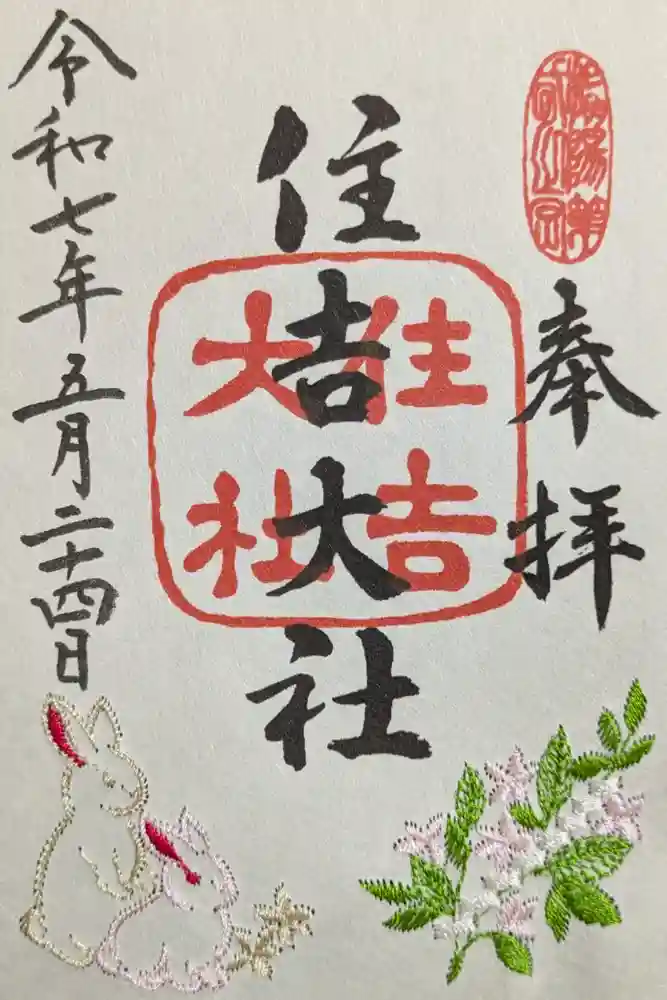 奉拝
住吉大社
住吉
大社
令和七年五月二十四日